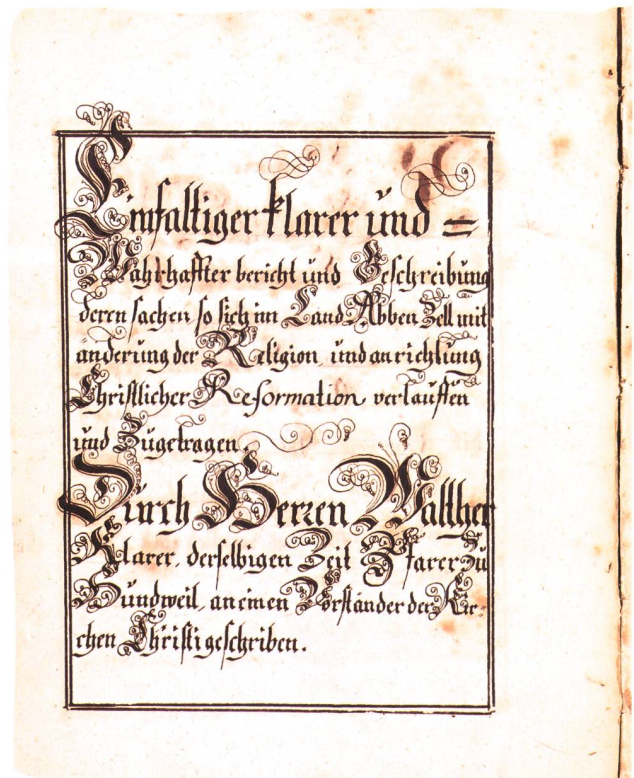 Einfaltiger klarer und =
Wahrhaffter bericht und Beschreibung
deren sachen, so sich im Land Abben Zell mit
änderung der Religion, und anrichtung
Christlicher Reformation verlauffen
und Zügetragen.
Dürch Herren Walther
Klarer, derselbigen Zeit Pfarer Zü
Hundweil, an einen Vorständer der Kir-
chen Christi geschriben.